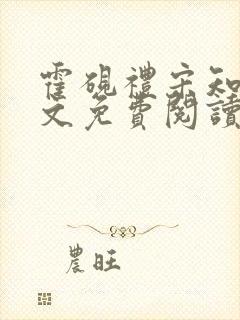 霍硯禮宋知
文免費閱讀
農旺